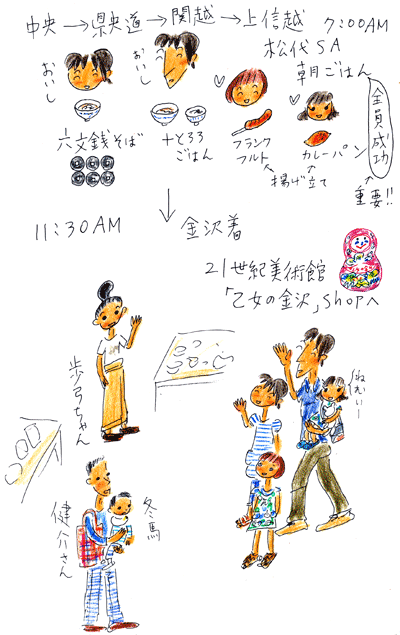 中央→県央道→関越→上信越 7:00AM
松代SA
朝ごはん
おいし
おいし
六文銭そば
+とろろ
ごはん
フランク
フルト
カレーパン
揚げ立て
全員成功
重要!!
11:30AM 金沢着
21世紀美術館
「乙女の金沢」shopへ
歩弓ちゃん
健介さん
冬馬